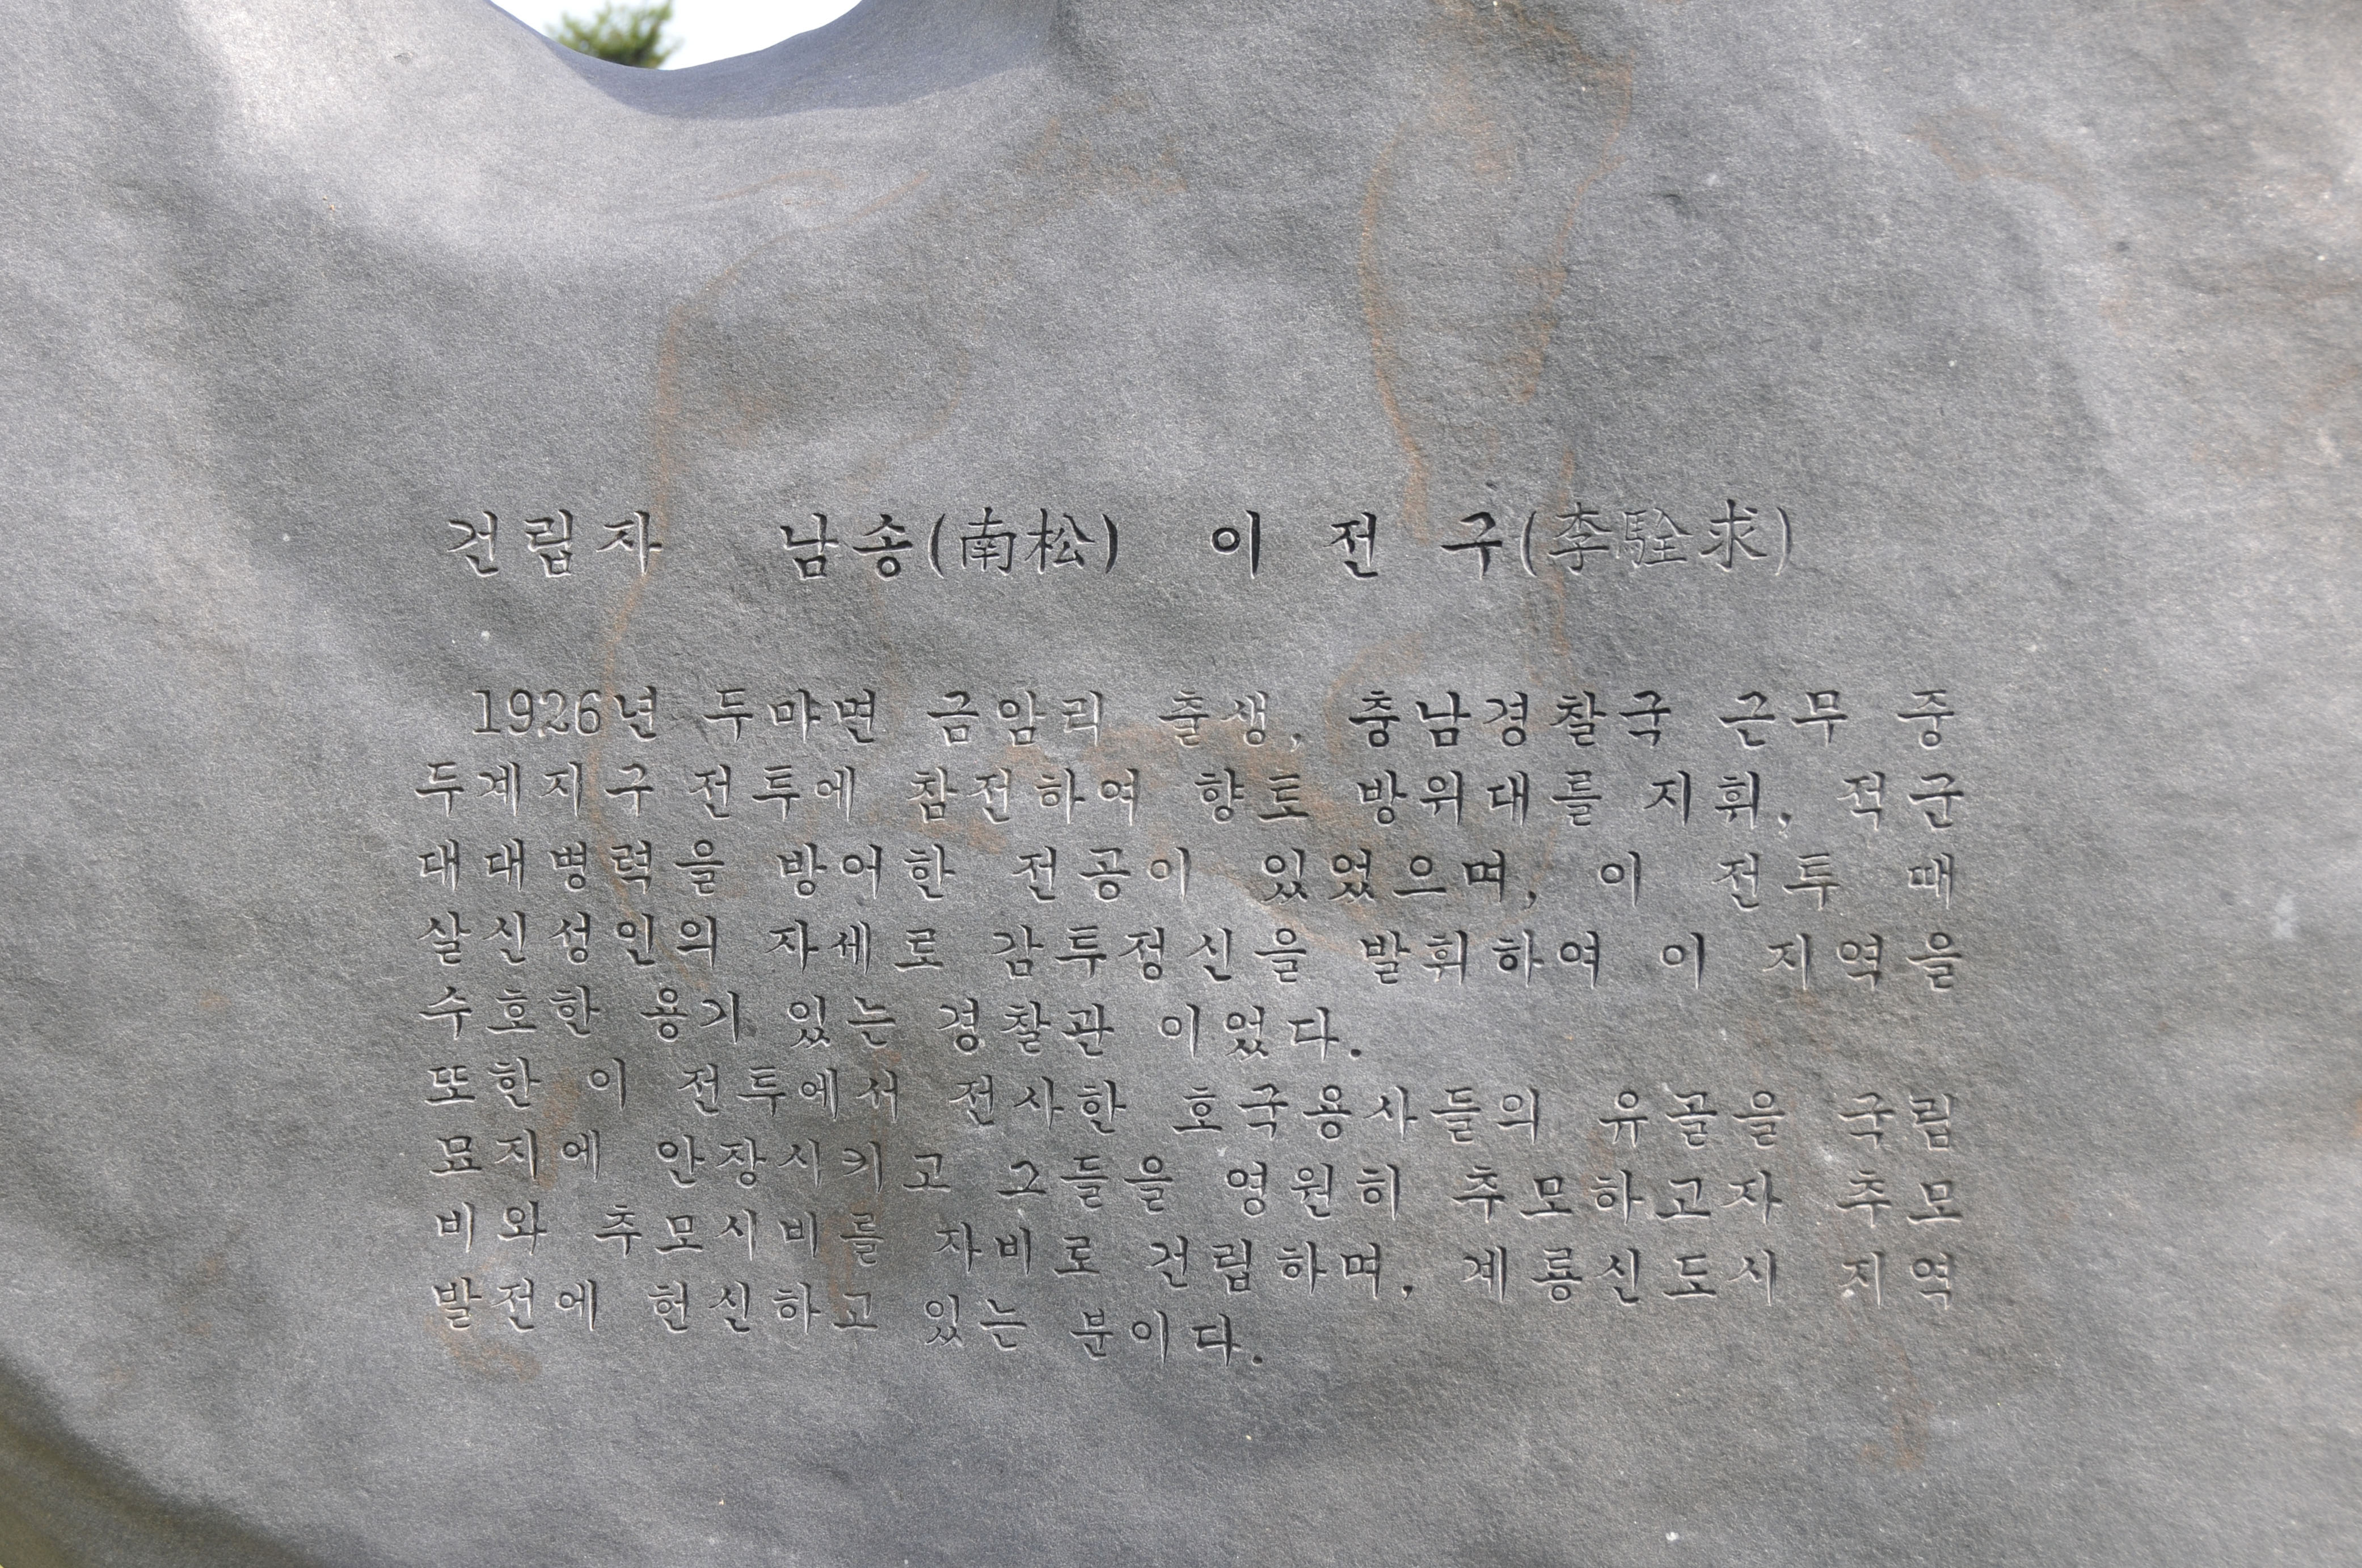 건립자 남송(南松) 이 전 구(李駩求)
1926년 두마면 금암리 출생, 충남경찰국 근무 중
두계지구 전투에 참전하여 향토 방위대를 지휘, 적군
대대병력을 방어한 전공이 있었으며, 이 전투 때
살신성인의 자세로 감투정신을 발휘하여 이 지역을
수호한 용기 있는 경찰관 이었다.
또한 이 전투에서 전사한 호국용사들의 유골을 국립
묘지에 안장시키고 그들을 영원히 추모하고자 추모
비와 추모시비를 자비로 건립하며, 계룡신도시 지역
발전에 헌신하고 있는 분이다.